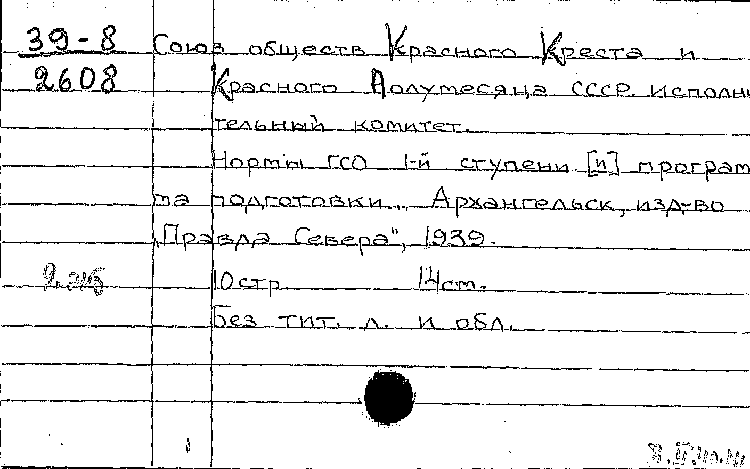 39-8 Союз обществ Красного Креста и
2608 Красного Полумесяца СССР. Исполни
тельный комитет.
Нормы ГСО 1-й ступени [и] програм
ма подготовки. Архангельск, изд-во
„Правда Севера", 1939.
10 стр. 14 см.
Без тит. л. и обл.